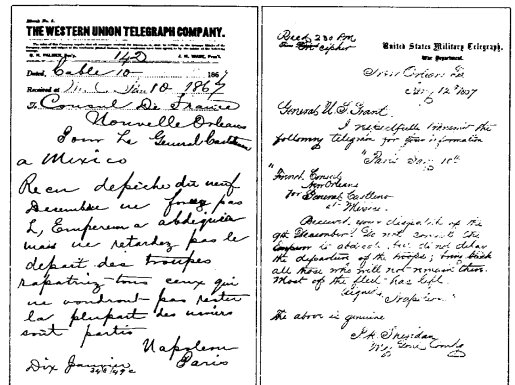 Blank No. 1.
THE WESTERN UNION TELEGRAPH COMPANY.
142
Dated, Cable 10 186
Received at Jan 10 1867
To Consul De France
Nouvelle Orleans
Pour Le General Castelnau
a Mexico
Recu depeche du neuf
Decembre ne forcez pas
L, Empereur a abdiquer
mais ne retardez pas le
depart des troupes
rapatriez tous ceux qui
ne voudront pas rester
la plupart des navires
sont partis
Napoleon
Dix Janvier Paris
Recd 230 PM
cipher
United States Military Telegraph.
War Department.
New Orleans La
Jany 12th 1867
General U. S. Grant.
I respectfully transmit the
following telegram for your information
"Paris Jany 10th
French Consul
New Orleans
for General Castleno
Mexico.
Received your dispatch of the
9th December. Do not compel the
Emperor to abdicate, but do not delay
the departure of the troops; bring back
all those who will not remain there.
Most of the fleet has left.
signed Napoleon.
The above is genuine
P. H. Sheridan
Maj Genl Comdg